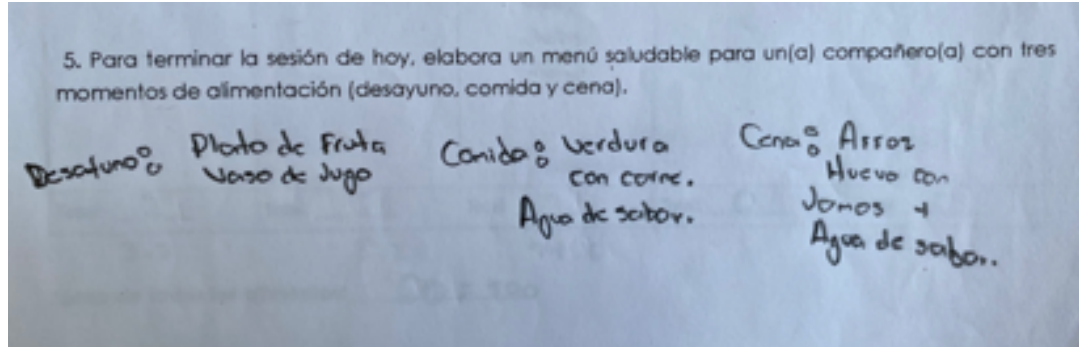 5. Para terminar la sesión de hoy, elabora un menú saludable para un(a) compañero(a) con tres
momentos de alimentación (desayuno, comida y cena).
Desayuno: Plato de Fruta
Vaso de Jugo
Comida: Verdura
con carne.
Agua de sabor.
Cena: Arroz
Huevo con
Jamos y
Agua de sabor.